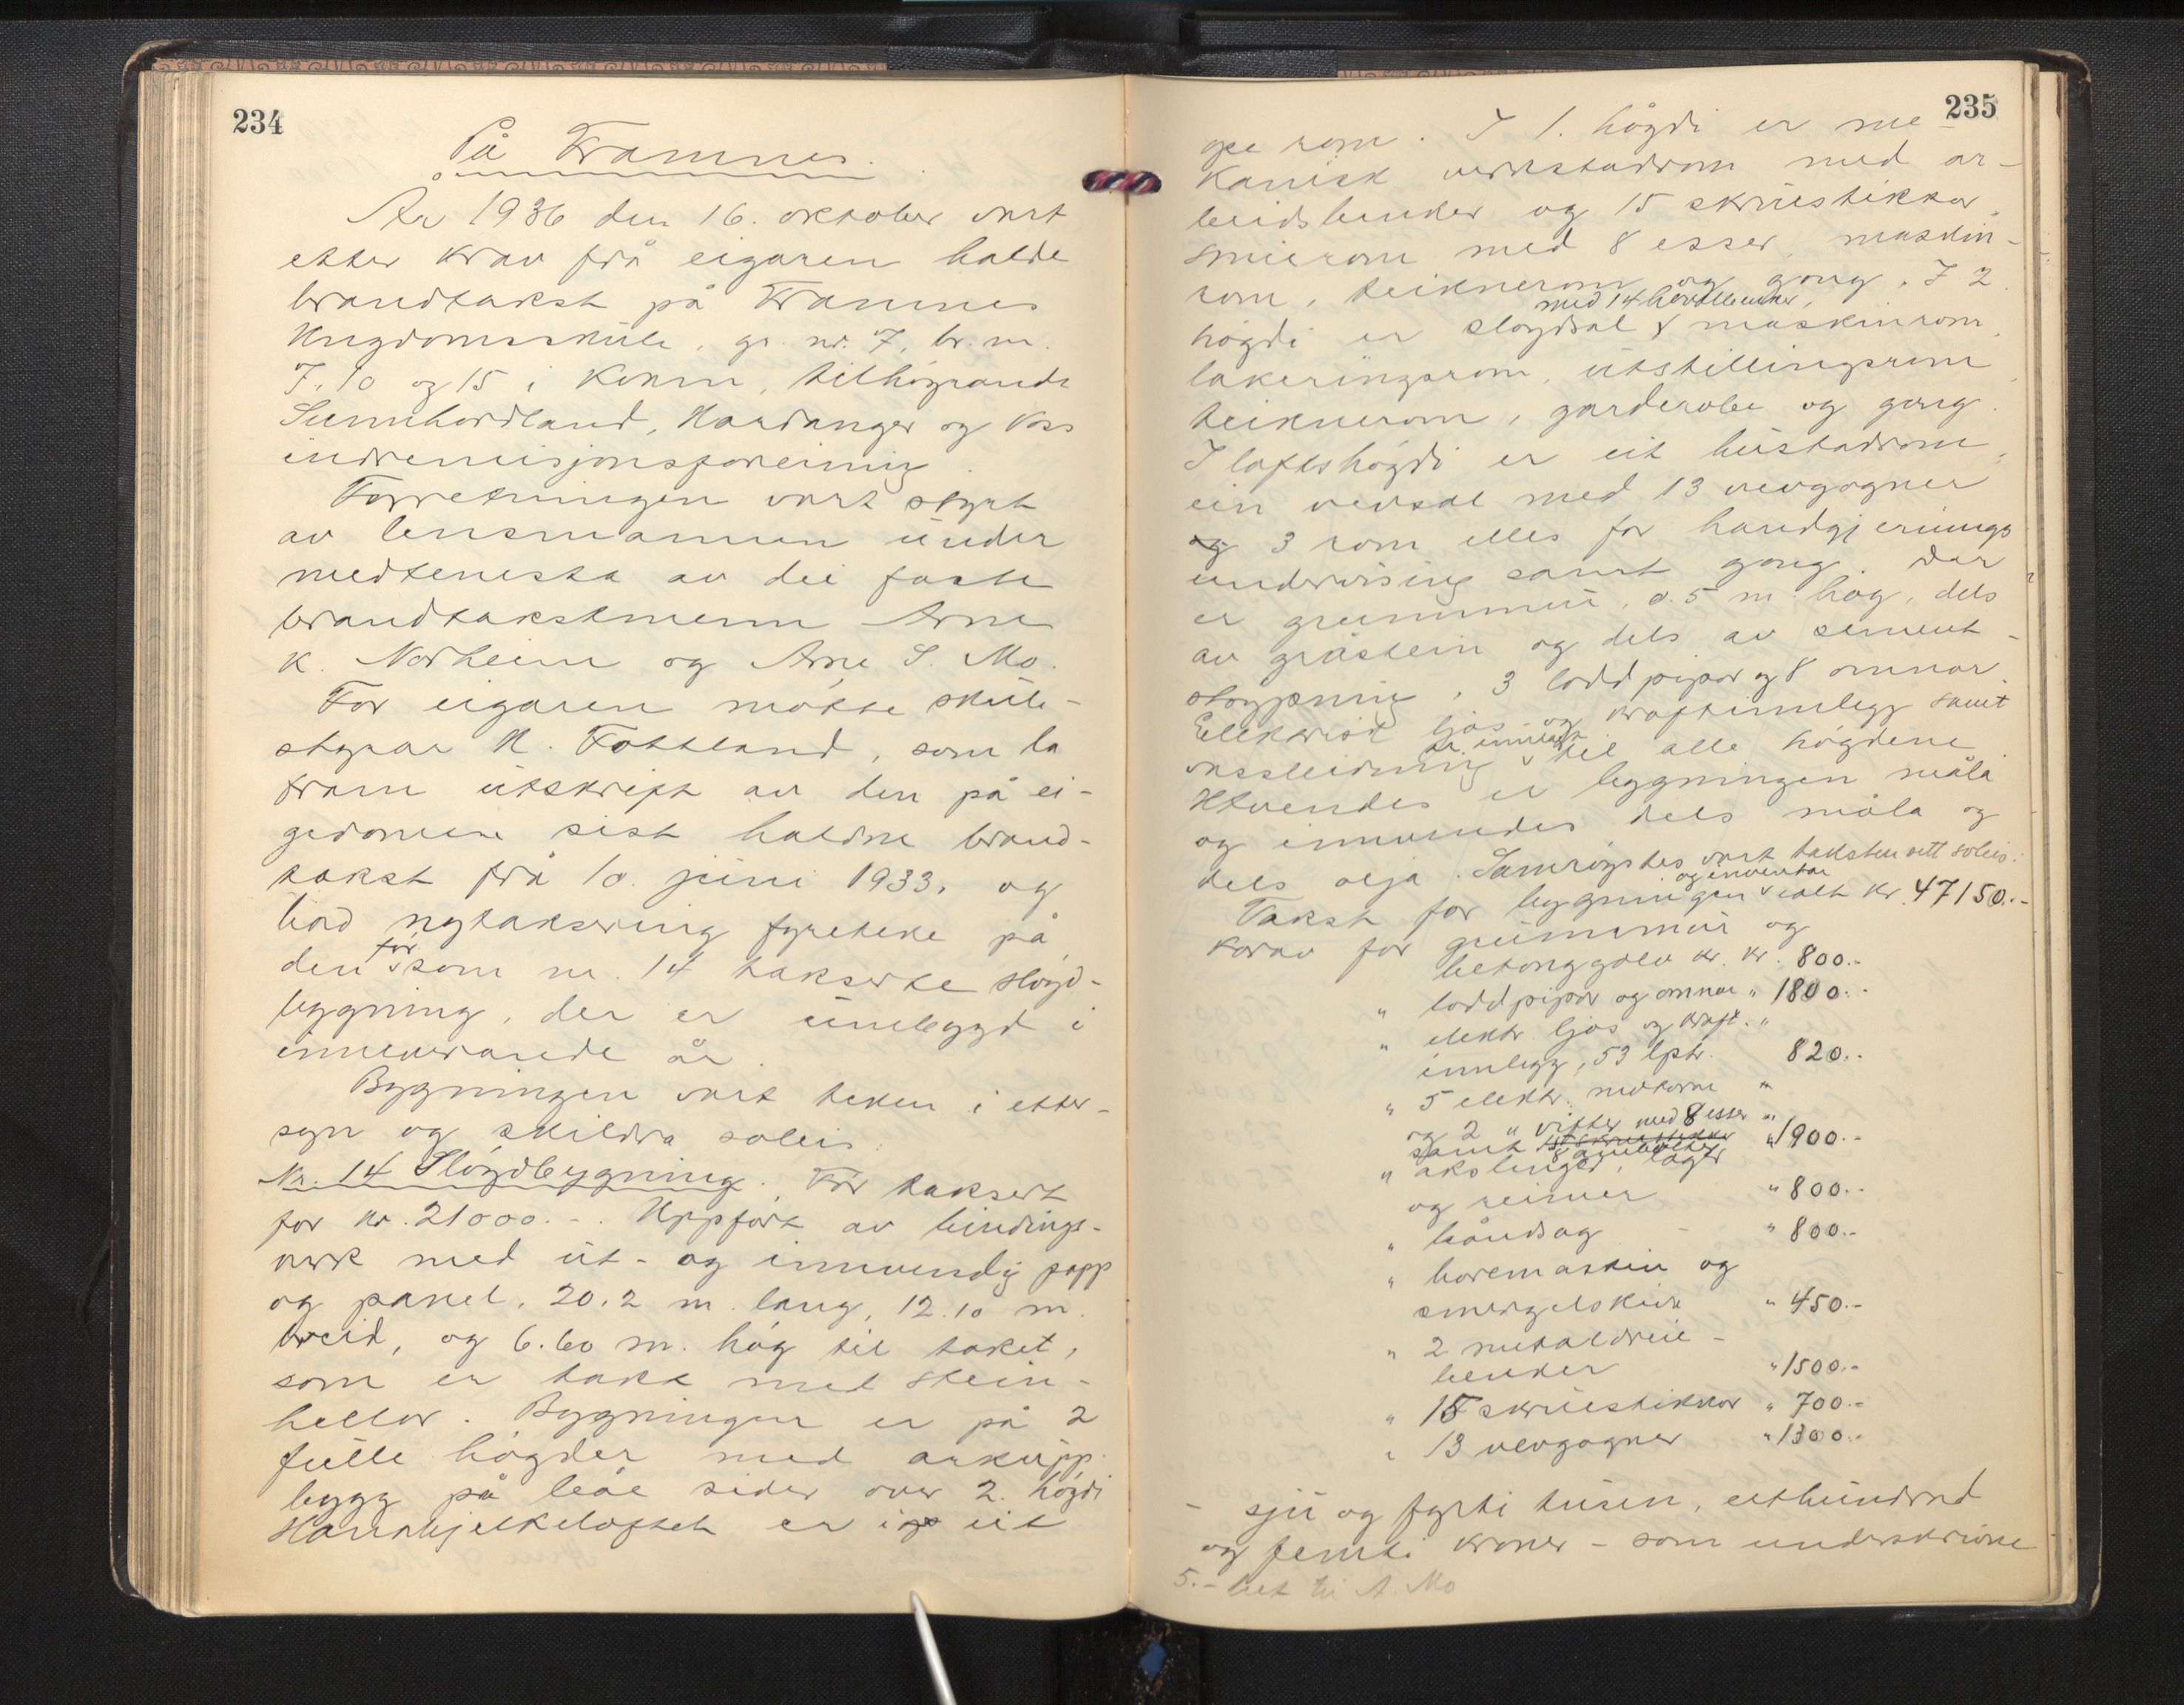 234
På Framnes.
År 1936 den 16. oktober vart
etter krav frå eigaren halde
brandtakst på Framnes
Ungdomsskule, gr. nr. 7, br. nr.
7, 10 og 15 i Kvam, tilhøyrande
Sunnhordland, Hardanger og Voss
indremisjonsforeining.
Forretningen vart styrt
av lensmannen under
medtenesta av dei faste
brandtakstmenn Arne
K. Norheim og Arne S. Mo.
For eigaren møtte skule-
styrar H. Fottland, som la
fram utskrift av den på ei-
gedomen sist haldne brand-
takst frå 10. juni 1933, og
bad nytaksering fyreteke på
den før som nr. 14 takserte sløyd-
bygning, der er umbygd i
inneverande år.
Bygningen vart teken i etter-
syn og skildra soleis:
Nr. 14 Sløydbygning. Før taksert
for kr. 21000.-. Uppført av bindings-
verk med ut- og innvendig papp
og panel, 20.2 m. lang, 12.10 m.
breid, og 6.60 m. høg til taket,
som er takt med stein-
hellor. Bygningen er på 2
fulle høgder med arkupp-
bygg på båe sider over 2. høgdi
Hanabjelkeloftet er eit
235
ope rom. I 1. høgdi er me-
kanisk verkstadrom med ar-
beidsbenker og 15 skruestikkor,
smierom med 8 esser, maskin-
rom, teiknerom og gong. I 2.
med 14 høvelbenker,
høgdi er sløydsal & maskinrom,
lakeringsrom, utstillingsrom
teiknerom, garderobe og gong.
I loftshøgdi er eit bustadrom,
ein vevsal med 13 vevgogner
og 3 rom elles for handgjernings
undervising samt gong. Der
er grunnmur, 0.5 m. høg, dels
av gråstein og dels av sement-
støypning, 3 loddpipor og 8 omnar.
Elektrisk ljos- og kraftinnlegg samt
vassleidning er innlagt til alle høgdene.
Utvendes er bygningen måla
og innvendes dels måla og
dels olja. Samrøystes vart taksten sett soleis:
Takst for bygningen og inventar ialt kr. 47150.-
Korav for grunnmur og
betonggolv kr. kr. 800.-
" loddpipor og omnar " 1800.-
" elektr. ljos og kraft- "
innlegg, 53 lptr. 820.-
" 5 elektr. motorar "
og 2 " vifter med 8 esser "
samt 8 amboltер " 1900.-
" akslinger, lagr
og reimer " 800.-
" båndsag " 800.-
" boremaskin og
smergelskive " 450.-
" 2 metaldreie-
benker " 1500.-
" 15 skruestikkor " 700.-
" 13 vevgogner " 1300.-
- sju og fyrti tusen, eithundrad
og femti kroner - som underskrivne
5.- bet til A. Mo